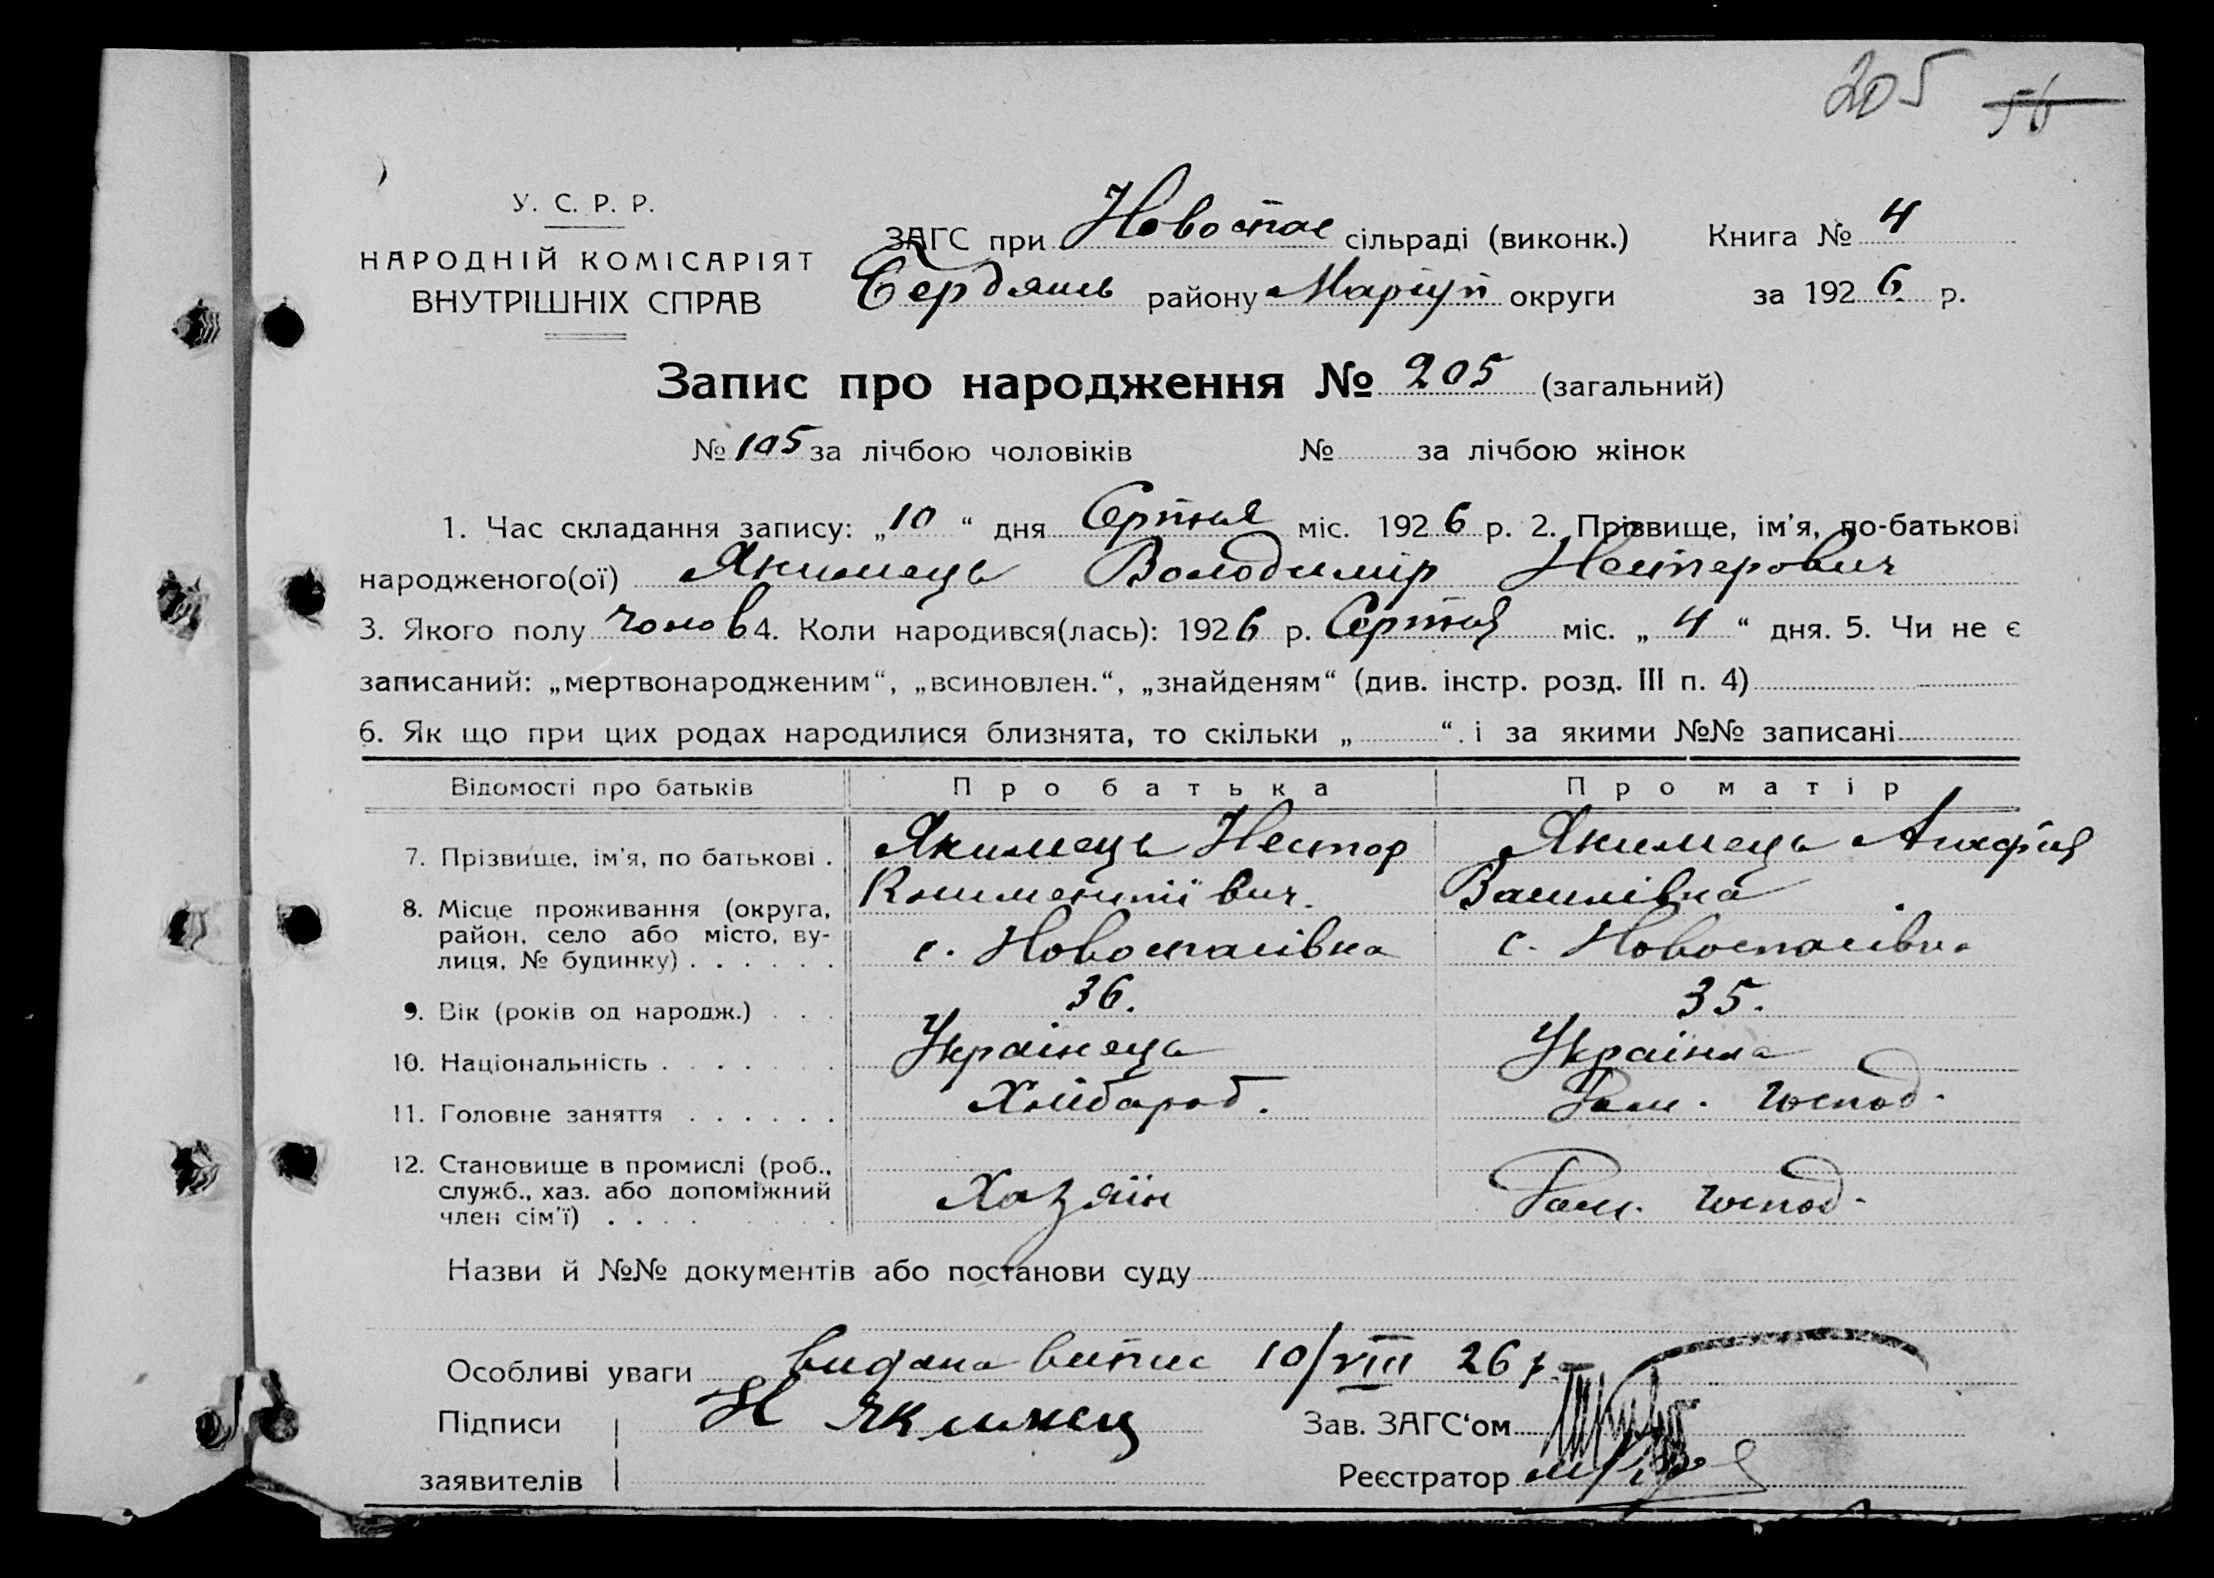 205 56
У. С. Р. Р.
НАРОДНІЙ КОМІСАРІЯТ
ВНУТРІШНІХ СПРАВ
ЗАГС при Новоспас сільраді (виконк.) Книга № 4
Бердянсь району Маріуп округи за 1926 р.
Запис про народження № 205 (загальний)
№ 105 за лічбою чоловіків № за лічбою жінок
1. Час складання запису: „10“ дня Серпня міс. 1926 р. 2. Прізвище, ім'я, по-батькові
народженого(ої) Якимець Володимір Нестерович
3. Якого полу чолов 4. Коли народився(лась): 1926 р. Серпня міс. „4“ дня. 5. Чи не є
записаний: „мертвонародженим“, „всиновлен.“, „знайденям“ (див. інстр. розд. III п. 4)
6. Як що при цих родах народилися близнята, то скільки „ “. і за якими №№ записані
Відомості про батьків Про батька Про матір
7. Прізвище, ім'я, по батькові . Якимець Нестор Якимець Агафія
Климентіївич. Василівна
8. Місце проживання (округа,
район, село або місто, ву-
лиця, № будинку) . . . . . . с. Новоспасівка с. Новоспасівка
9. Вік (років од народж.) . . . 36. 35.
10. Національність . . . . . . . Українець Українка
11. Головне заняття . . . . . . Хлібороб. Дом. господ.
12. Становище в промислі (роб.,
служб., хаз. або допоміжний
член сім'ї) . . . . Хазяїн Дом. господ.
Назви й №№ документів або постанови суду
Особливі уваги видана випис 10/VIII 26 р.
Підписи Н Якимец Зав. ЗАГС‘ом
заявителів Реєстратор